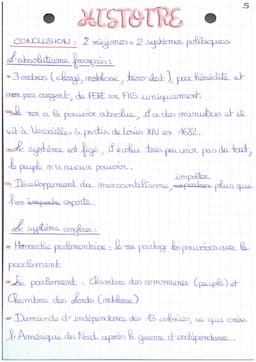 5
HISTOIRE
CONCLUSION: 2 régimes = 2 systèmes politiques
L'absolutisme français:
- 3 ordres (clergé, noblesse, tiers-état), par hérédité et
non par argent, de PERE en FILS uniquement.
- Le roi a le pouvoir absolue, il a des ministres et il
vit à Versailles à partir de Louis XIV en 1682.
- Le système est figé, il évolue très peu voir pas du tout,
le peuple n'a aucun pouvoir.
- Développement du mercantilisme, importer plus que
l'on exporte.
Le système anglais:
- Monarchie parlementaire: le roi partage les pouvoirs avec le
parlement
- Le parlement: Chambre des communes (peuple) et
Chambre des Lords (noblesse)
- Demande d'indépendance des 13 colonies, ce qui crée
l'Amérique du Nord après la guerre d'indépendance.